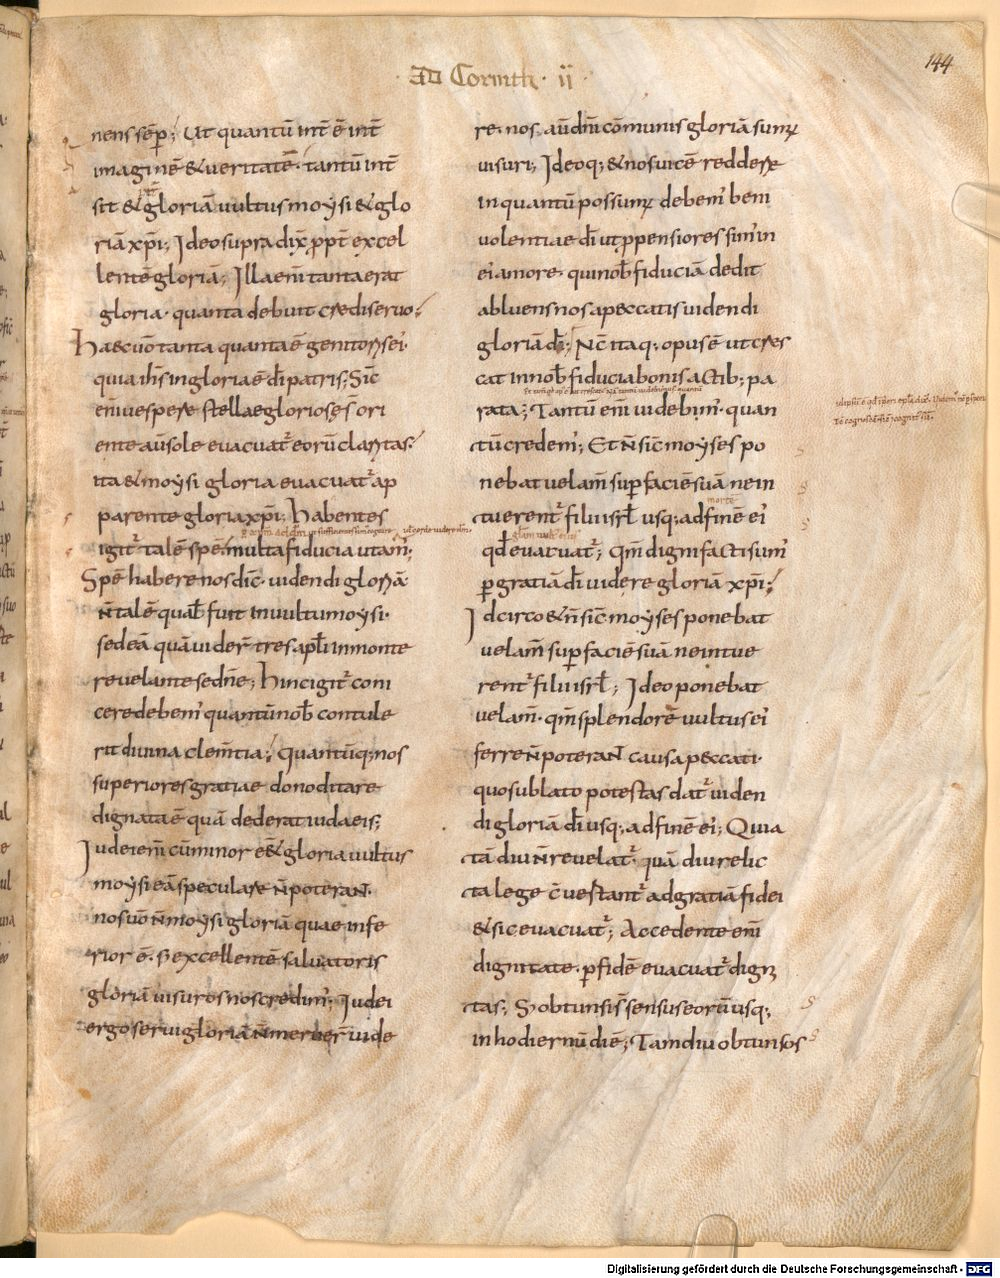 AD Corinth · II ·
144
nens sēp; Ut quantū inť ē inť
imaginē & veritatē · tantū inť
sit & gloriā vultus moysi & glo
riā xp̄i; Ideo supra dix̄ ppť excel
lentē gloriā; Illa enī tanta erat
gloria · quanta debuit credi servo;
Haec vō tanta quanta ē genitoris ei'
quia ih̄s in gloria ē dī patris; Sic
enī vespere stellae gloriosę s̄ ori
ente aū sole evacuat' eorū claritas;
ita & moysi gloria evacuat' ap
parente gloria xp̄i; Habentes
igit' talē spē multa fiducia utam̄;
Spē habere nos dic̄ · videndi gloriā
n̄ talē qual̄ fuit in vultu moysi ·
sed eā quā vider̄ tres apl̄i in monte
revelante se dn̄e; Hinc igit' coni
cere debem' quantū nob̄ contule
rit divina clem̄tia; Quantūq; nos
superiores gratiae dono ditare
dignata ē quā dederat iudaeis;
Iudei enī cū minor eēt & gloria vultus
moysi eā speculare n̄ poteraN̄
nos vō n̄ moysi gloriā quae infe
rior ē · s; excellentē salvatoris
gloriā visuros nos credim'; Iudei
ergo servi gloriā n̄ meruer̄ vide
re · nos aū dn̄i cōmunis gloriā sum'
visuri; Ideoq; & nos vicē reddere
in quantū possum' debem' beni
volentiae dī ut ppensiores sim' in
ei' amore · qui nob̄ fiduciā dedit
abluens nos a peccatis videndi
gloriā dī; Nc̄ itaq; opus ē ut cres
cat in nob̄ fiducia bonis actib; pa
rata; Tantū enī videbim' · quan
tū credem'; Et n̄ sic moyses po
nebat velam̄ sup faciē suā ne in
morte
tuerent' filii isrl̄ usq; ad finē ei'
qd̄ evacuat'; Qm̄ digni facti sum'
p gratiā dī videre gloriā xp̄i;
Idcirco & n̄ sic moyses ponebat
velam̄ sup faciē suā ne intue
rent' filii isrl̄; Ideo ponebat
velam̄ · qm̄ splendorē vultus ei'
ferre n̄ poteraN̄ causa peccati ·
quo sublato potestas dat' viden
di gloriā dī usq; ad finē ei'; Quia
tā diu n̄ revelat' · quā diu relic
ta lege c̄vestant' ad gratiā fidei
& sic evacuat'; Accedente enī
dignitate · p fidē evacuat' digni
tas; S; obtunsi s̄ sensus eorū usq;
in hodiernū diē; Tam diu obtunsos
Digitalisierung gefördert durch die Deutsche Forschungsgemeinschaft - DFG